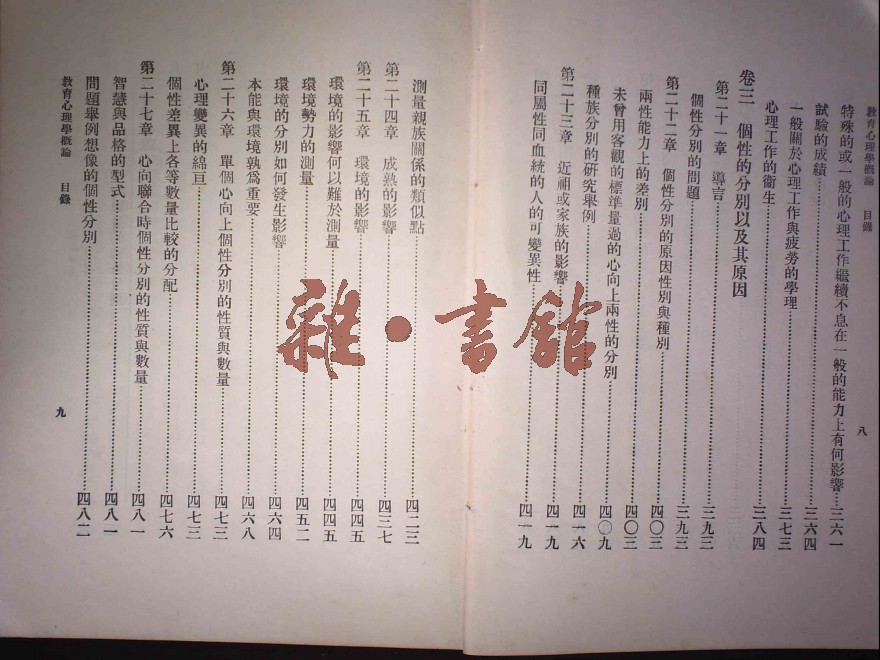 教育心理學概論　目錄
八
特殊的或一般的心理工作繼續不息在一般的能力上有何影響…三六一
試驗的成績…三六四
一般關於心理工作與疲勞的學理…三七三
心理工作的衞生…三八四
卷三　個性的分別以及其原因
第二十一章　導言…三九三
個性分別的問題…三九三
第二十二章　個性分別的原因性別與種別…四〇三
兩性能力上的差別…四〇三
未曾用客觀的標準量過的心向上兩性的分別…四〇九
種族分別的研究舉例…四一六
第二十三章　近祖或家族的影響…四一九
同屬性同血統的人的可變異性…四一九
測量親族關係的類似點…四二三
第二十四章　成熟的影響…四三七
第二十五章　環境的影響…四四五
環境的影響何以難於測量…四四五
環境勢力的測量…四五二
環境的分別如何發生影響…四六四
本能與環境孰爲重要…四六八
第二十六章　單個心向上個性分別的性質與數量…四七三
心理變異的綿亘…四七三
個性差異上各等數量比較的分配…四七六
第二十七章　心向聯合時個性分別的性質與數量…四八一
智慧與品格的型式…四八一
問題舉例想像的個性分別…四八二
教育心理學概論　目錄
九
雜·書館